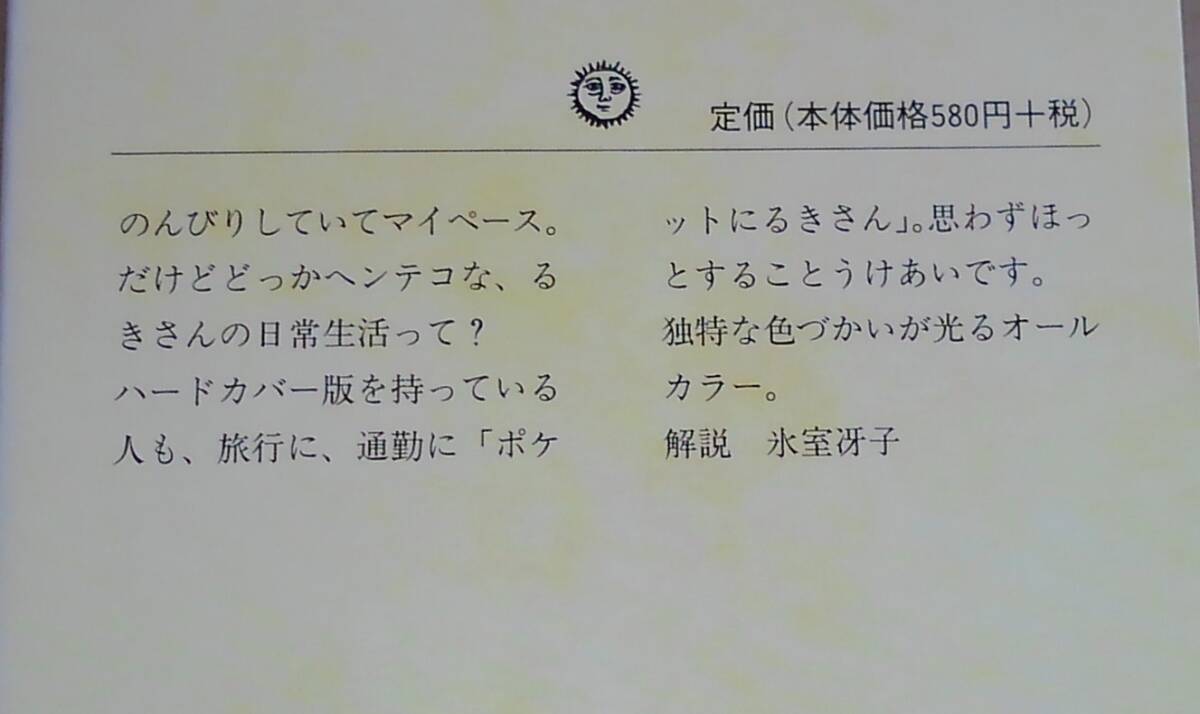 定価(本体価格580円+税)
のんびりしていてマイペース。
だけどどっかヘンテコな、る
きさんの日常生活って?
ハードカバー版を持っている
人も、旅行に、通勤に「ポケ
ットにるきさん」。思わずほっ
とすることうけあいです。
独特な色づかいが光るオール
カラー。
解説 氷室冴子